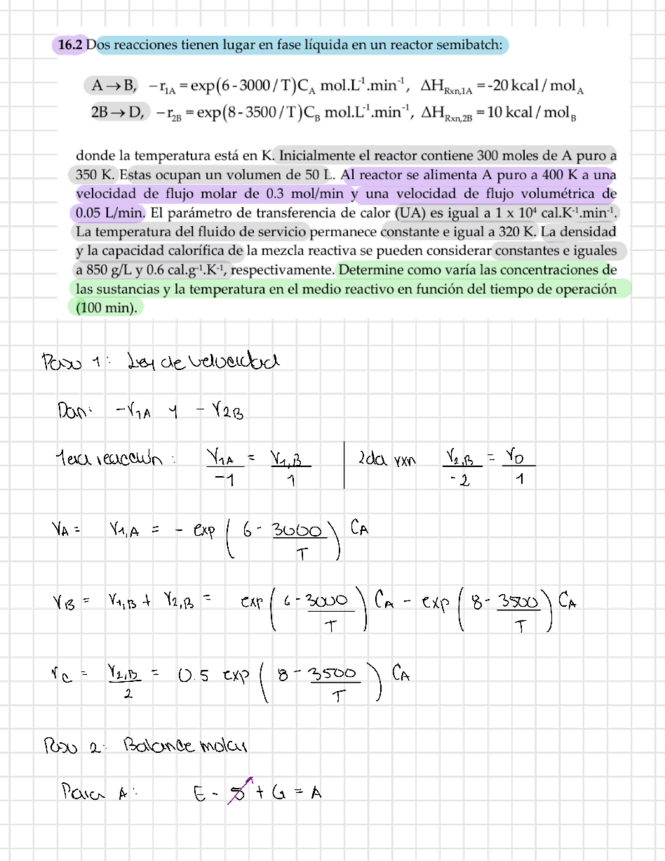 16.2 Dos reacciones tienen lugar en fase líquida en un reactor semibatch:
A → B, −r₁A = exp(6 - 3000 / T)CA mol.L⁻¹.min⁻¹, ΔHRxn,1A = -20 kcal / molA
2B → D, −r₂B = exp(8 - 3500 / T)CB mol.L⁻¹.min⁻¹, ΔHRxn,2B = 10 kcal / molB
donde la temperatura está en K. Inicialmente el reactor contiene 300 moles de A puro a
350 K. Estas ocupan un volumen de 50 L. Al reactor se alimenta A puro a 400 K a una
velocidad de flujo molar de 0.3 mol/min y una velocidad de flujo volumétrica de
0.05 L/min. El parámetro de transferencia de calor (UA) es igual a 1 x 10⁴ cal.K⁻¹.min⁻¹.
La temperatura del fluido de servicio permanece constante e igual a 320 K. La densidad
y la capacidad calorífica de la mezcla reactiva se pueden considerar constantes e iguales
a 850 g/L y 0.6 cal.g⁻¹.K⁻¹, respectivamente. Determine como varía las concentraciones de
las sustancias y la temperatura en el medio reactivo en función del tiempo de operación
(100 min).
Paso 1: Ley de velocidad
Dan: −r1A y −r2B
1era reacción: r1A/−1 = r1,B/1 | 2da rxn r2,B/−2 = rD/1
rA = r1,A = − exp(6 − 3000/T) CA
rB = r1,B + r2,B = exp(6 − 3000/T) CA − exp(8 − 3500/T) CA
rC = r2,B/2 = 0.5 exp(8 − 3500/T) CA
Paso 2: Balance molar
Para A: E - S + G = A